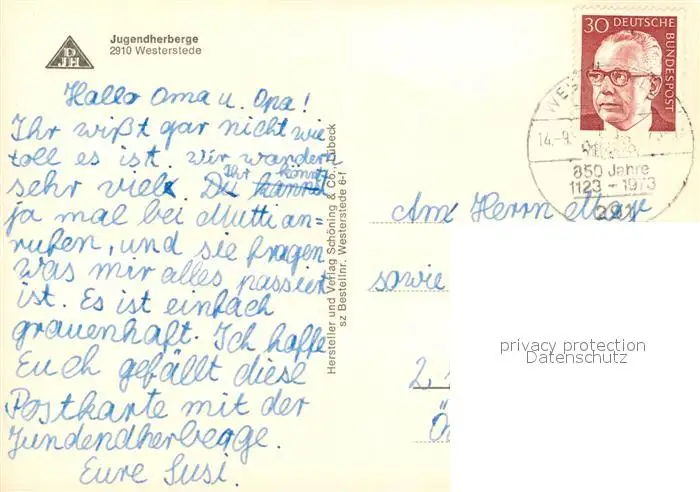 DJH
Jugendherberge
2910 Westerstede
Hallo Oma u. Opa!
Ihr wißt gar nicht wie
toll es ist. wir wandern
sehr viel. Du kannst Ihr könnt
ja mal bei Mutti an-
rufen, und sie fragen
was mir alles passiert
ist. Es ist einfach
grauenhaft. Ich hoffe
Euch gefällt diese
Postkarte mit der
Jundendherberge.
Eure Susi.
Hersteller und Verlag Schöning & Co., Lübeck
sz Bestellnr. Westerstede 6-f
30 DEUTSCHE
BUNDESPOST
14.-9.
850 Jahre
1123 - 1973
291
An Herrn
sowie
2.
privacy protection
Datenschutz